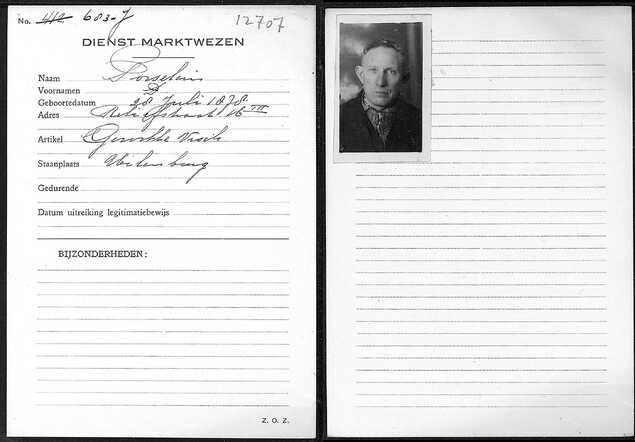 No. 412 683-J 12707
DIENST MARKTWEZEN
Naam Porselein
Voornamen D
Geboortedatum 28 Juli 1878
Adres Retiefstraat 16 III
Artikel Gerookte Visch
Staanplaats Uilenburg
Gedurende
Datum uitreiking legitimatiebewijs
BIJZONDERHEDEN:
Z. O. Z.